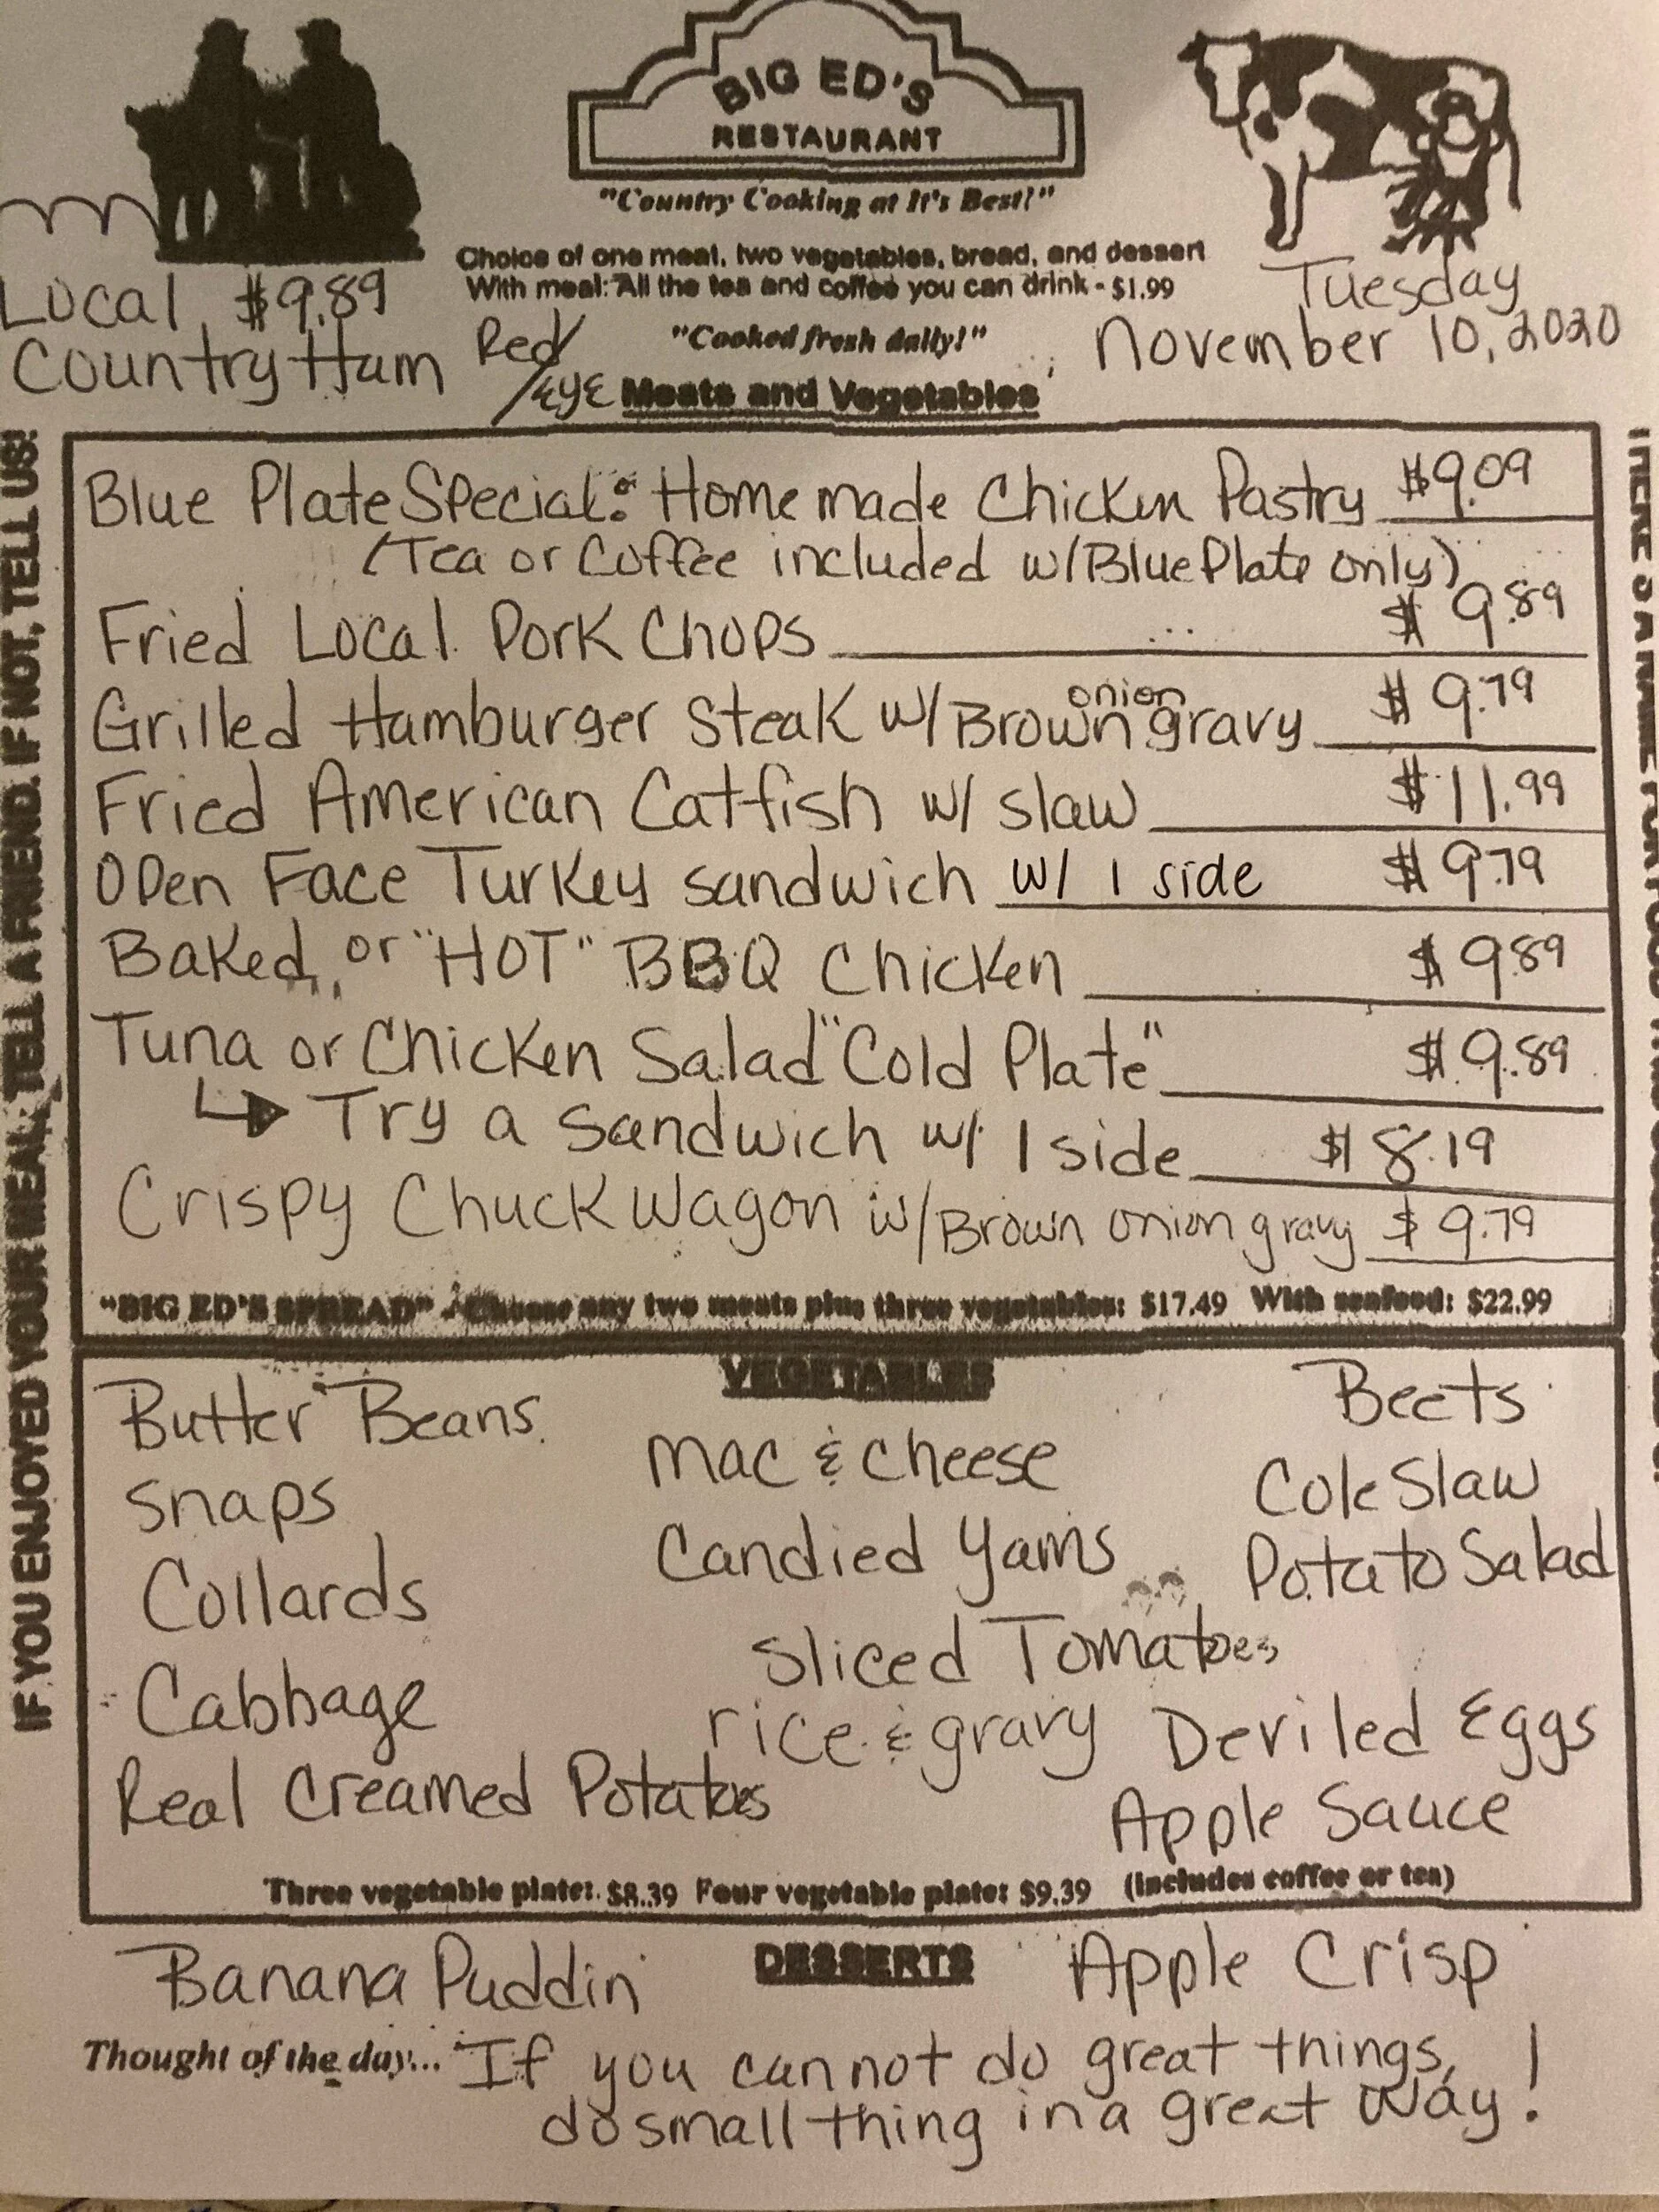 BIG ED'S
RESTAURANT
"Country Cooking at It's Best!"
Choice of one meat, two vegetables, bread, and dessert
With meal: All the tea and coffee you can drink - $1.99
"Cooked fresh daily!"
Local $9.89
Country Ham
Red/
Eye
Tuesday
November 10, 2020
Meats and Vegetables
Blue Plate Special: Homemade Chicken Pastry $9.09
(Tea or Coffee included w/Blue Plate only)
Fried Local Pork Chops $9.89
Grilled Hamburger Steak w/Brown onion gravy $9.79
Fried American Catfish w/ slaw $11.99
Open Face Turkey sandwich w/ 1 side $9.79
Baked, or "HOT" BBQ Chicken $9.89
Tuna or Chicken Salad "Cold Plate" $9.89
↳ Try a sandwich w/ 1 side $8.19
Crispy Chuckwagon w/Brown onion gravy $9.79
"BIG ED'S SPREAD" - Choose any two meats plus three vegetables: $17.49 With seafood: $22.99
VEGETABLES
Butter Beans
Snaps
Collards
Cabbage
Real Creamed Potatoes
Mac & Cheese
Candied Yams
Sliced Tomatoes
rice & gravy
Beets
Cole Slaw
Potato Salad
Deviled Eggs
Apple Sauce
Three vegetable plate: $8.39 Four vegetable plate: $9.39 (includes coffee or tea)
DESSERTS
Banana Puddin'
Apple Crisp
Thought of the day... If you cannot do great things,
do small thing in a great way!
IF YOU ENJOYED YOUR MEAL, TELL A FRIEND. IF NOT, TELL US!